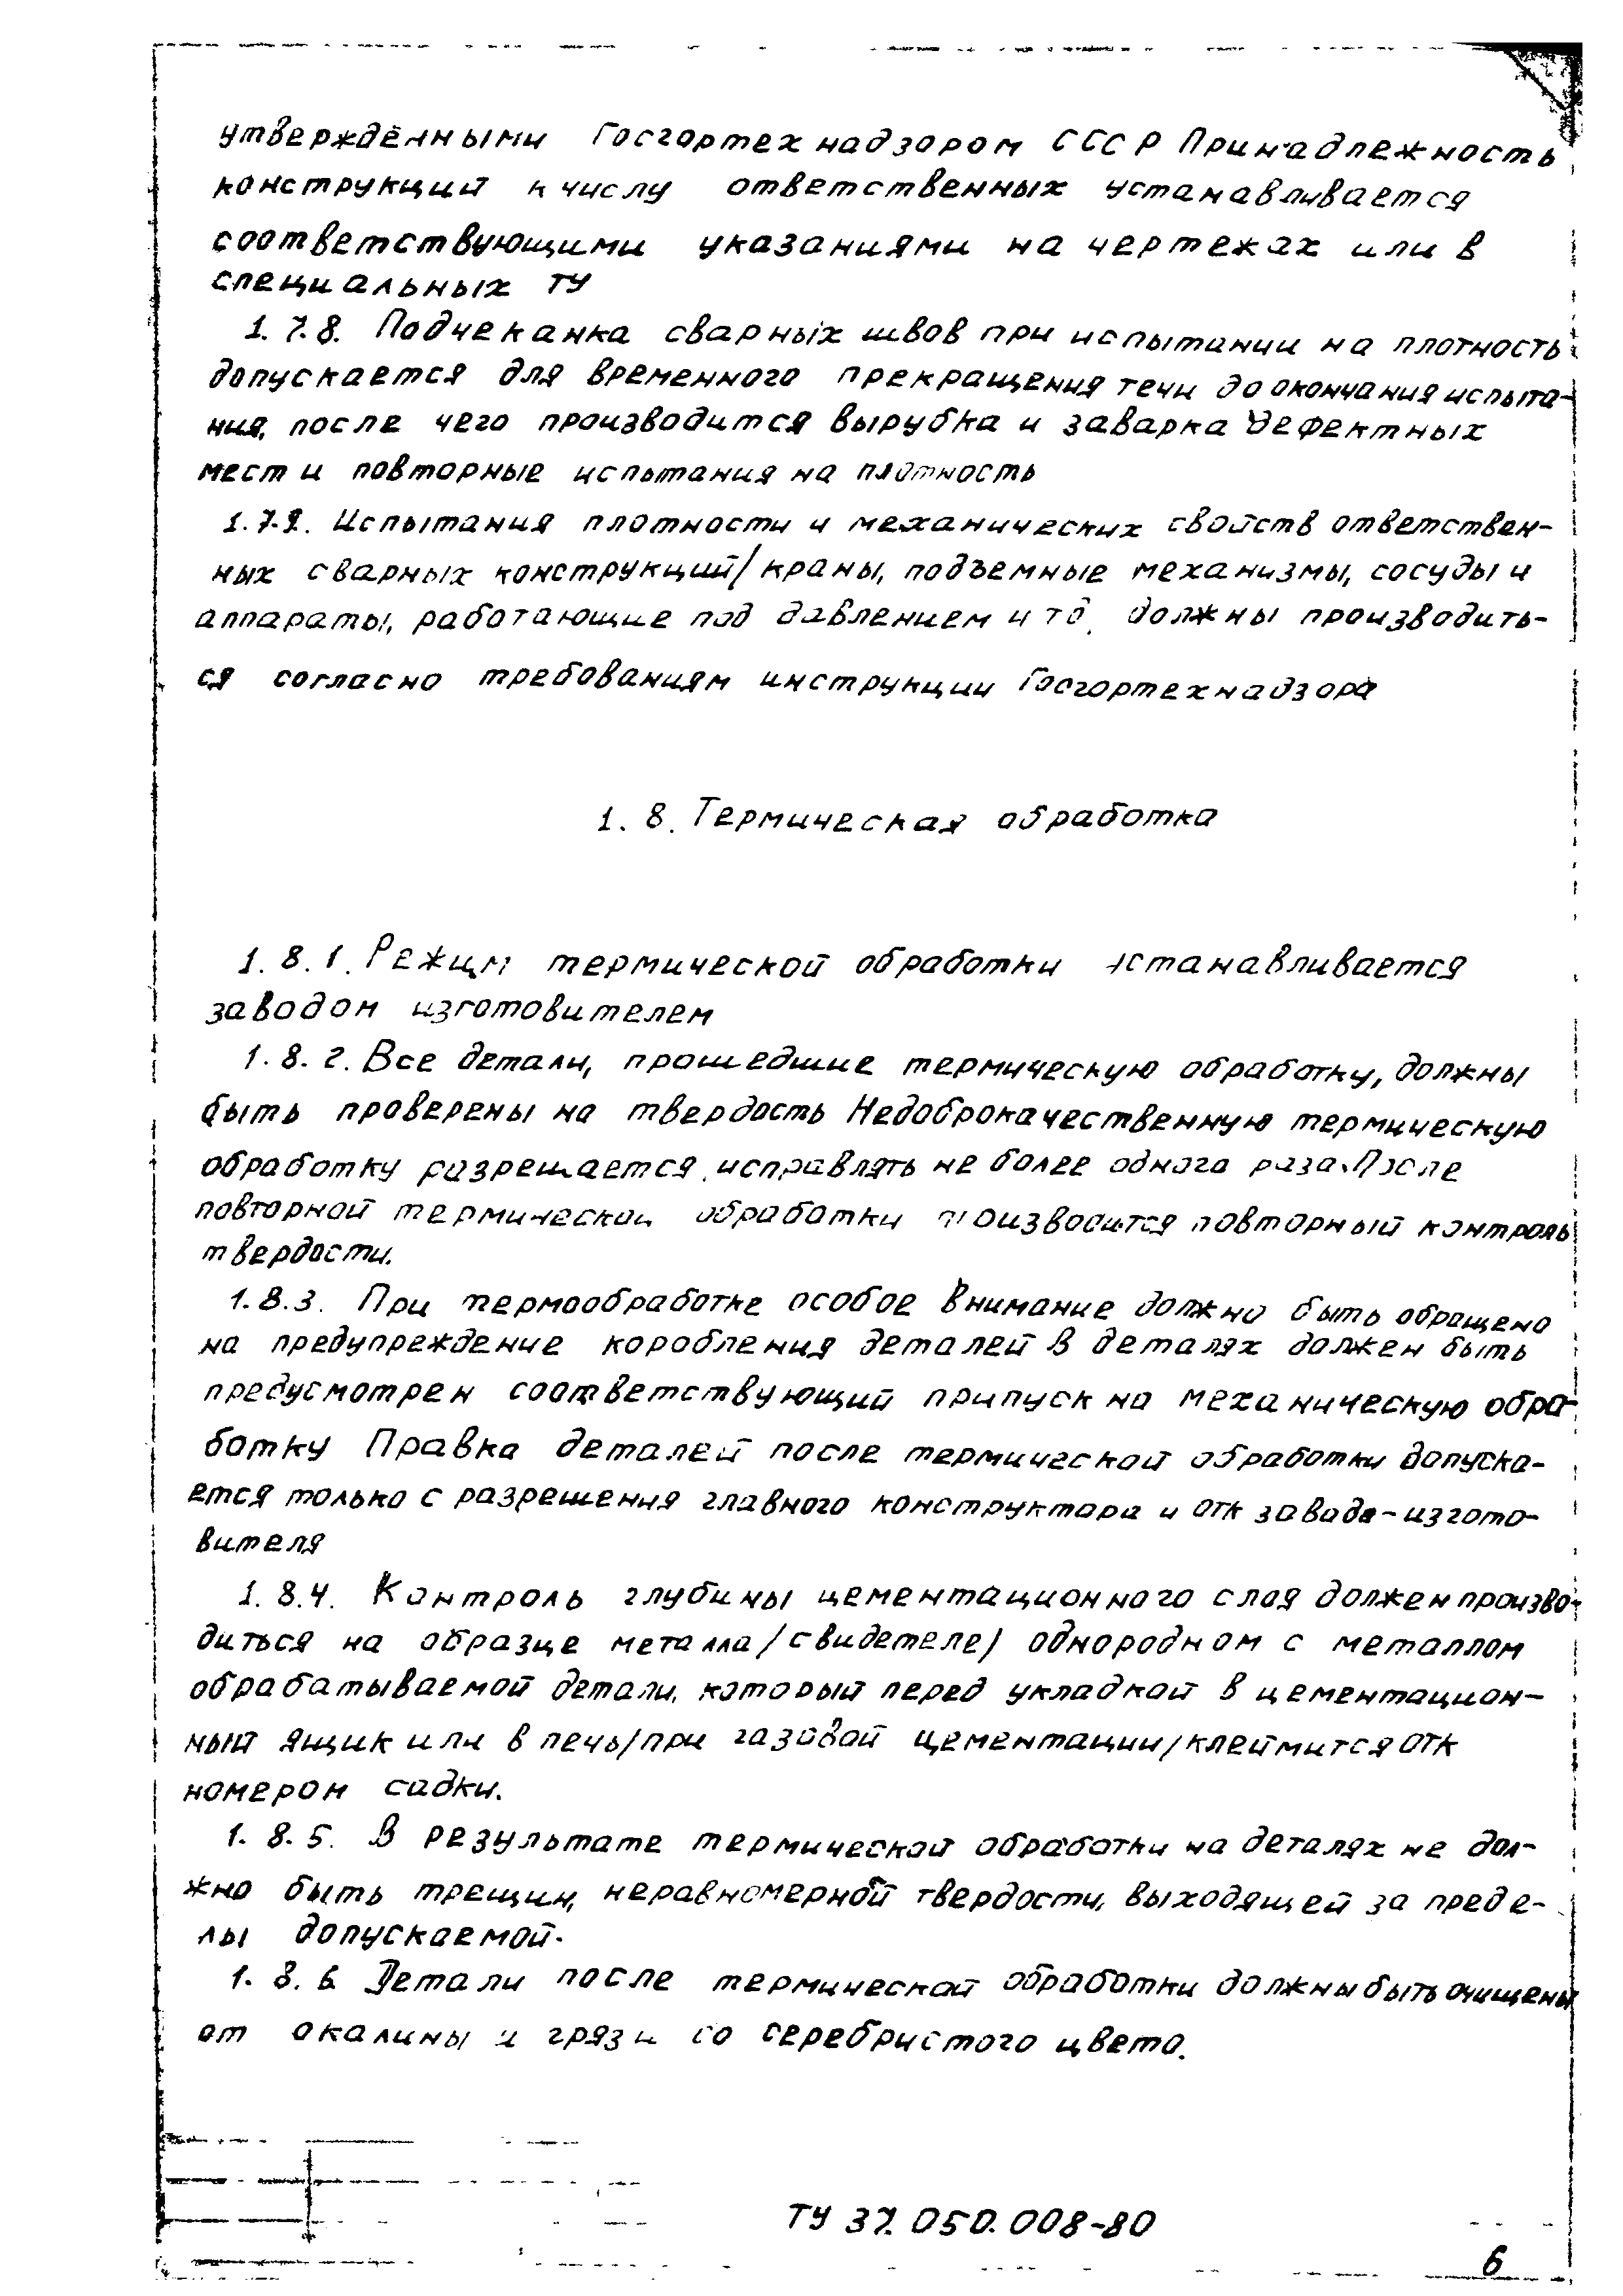 утверждёнными Госгортехнадзором СССР Принадлежность
конструкций к числу ответственных устанавливается
соответствующими указаниями на чертежах или в
специальных ТУ
1.7.8. Подчеканка сварных швов при испытании на плотность
допускается для временного прекращения течи до окончания испыта-
ния, после чего производится вырубка и заварка дефектных
мест и повторные испытания на плотность
1.7.9. Испытания плотности и механических свойств ответствен-
ных сварных конструкций/краны, подъемные механизмы, сосуды и
аппараты, работающие под давлением и тд. должны производить-
ся согласно требованиям инструкции Госгортехнадзора
1.8. Термическая обработка
1.8.1. Режим термической обработки устанавливается
заводом изготовителем
1.8.2. Все детали, прошедшие термическую обработку, должны
быть проверены на твердость Недоброкачественную термическую
обработку разрешается исправлять не более одного раза. После
повторной термической обработки производится повторный контроль
твердости.
1.8.3. При термообработке особое внимание должно быть обращено
на предупреждение коробления деталей В деталях должен быть
предусмотрен соответствующий припуск на механическую обра-
ботку Правка деталей после термической обработки допуска-
ется только с разрешения главного конструктора и ОТК завода-изгото-
вителя
1.8.4. Контроль глубины цементационного слоя должен произво-
диться на образце металла/свидетеле/ однородном с металлом
обрабатываемой детали, который перед укладкой в цементацион-
ный ящик или в печь/при газовой цементации/клеймится ОТК
номером садки.
1.8.5. В результате термической обработки на деталях не дол-
жно быть трещин, неравномерной твердости, выходящей за преде-
лы допускаемой.
1.8.6 Детали после термической обработки должны быть очищены
от окалины и грязи до серебристого цвета.
ТУ 37.050.008-80
6